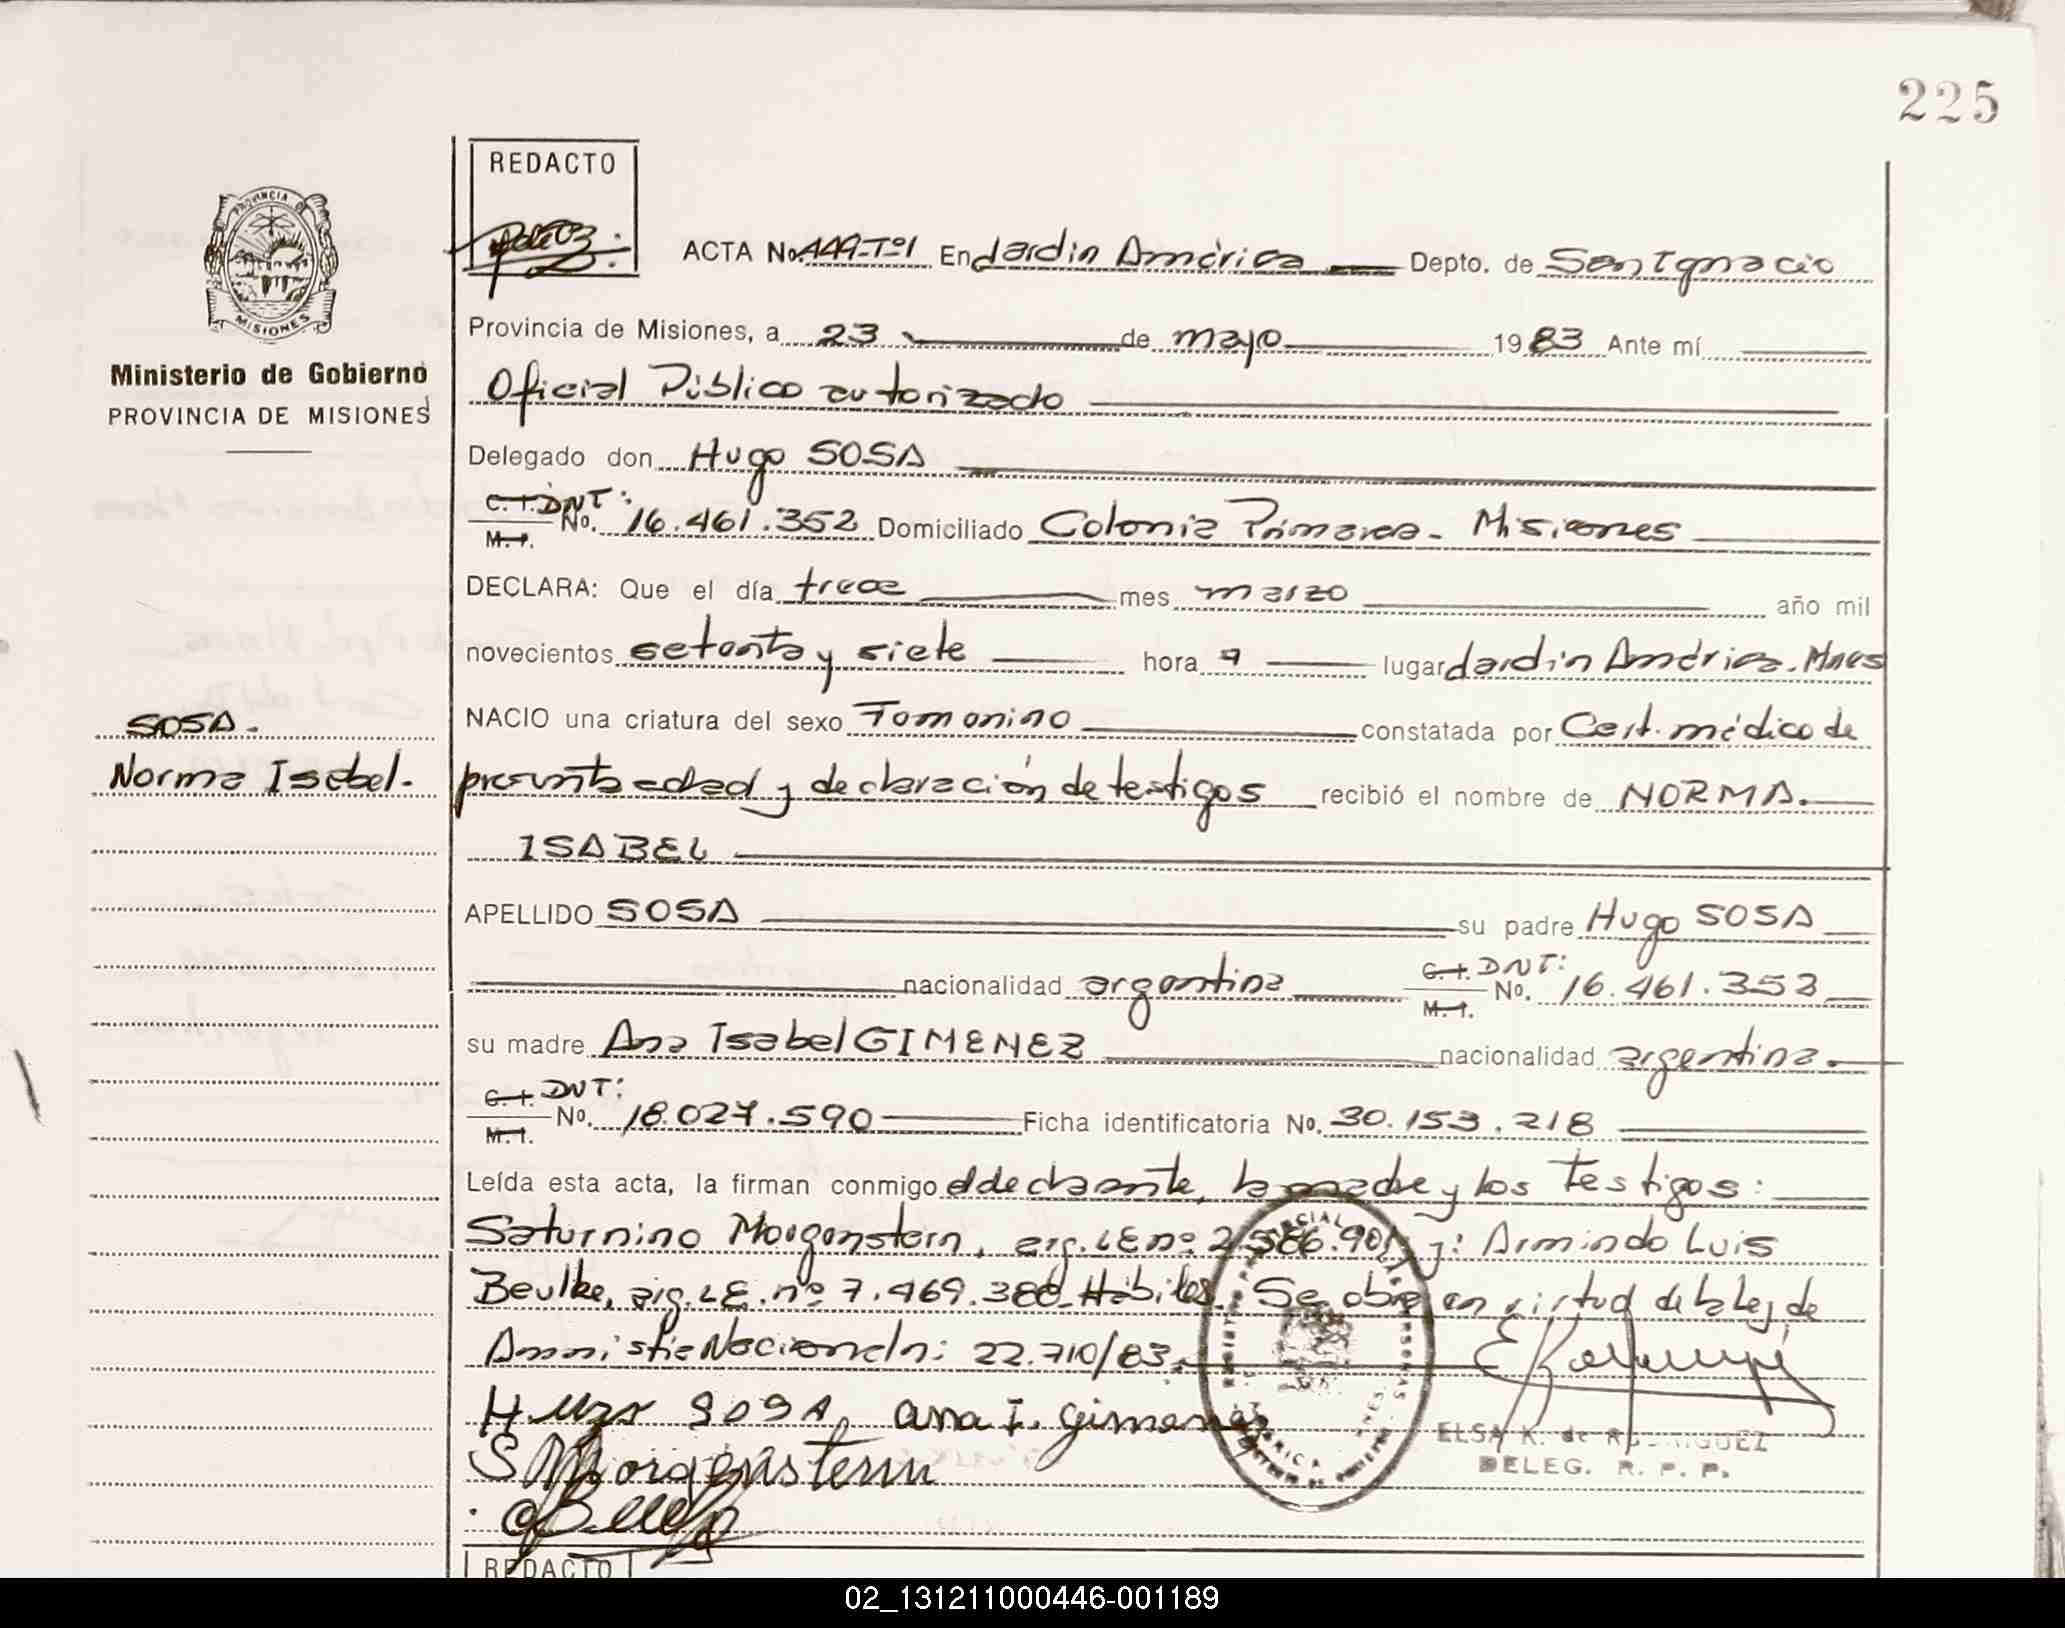 225
REDACTO
PROVINCIA DE
MISIONES
ACTA No. 449-Tº1 En Jardín América Depto. de San Ignacio
Provincia de Misiones, a 23 de mayo 1983 Ante mí
Ministerio de Gobierno
PROVINCIA DE MISIONES
Oficial Público autorizado
Delegado don Hugo SOSA
C. I. DNI:
M. I. No. 16.461.352 Domiciliado Colonia Primavera - Misiones
DECLARA: Que el día trece mes marzo año mil
novecientos setenta y siete hora 9 lugar Jardín América. Mnes
NACIO una criatura del sexo Femenino constatada por Cert. médico de
SOSA.
Norma Isabel.
presunta edad y declaración de testigos recibió el nombre de NORMA.
ISABEL
APELLIDO SOSA su padre Hugo SOSA
nacionalidad argentina C. I. DNI:
M. I. No. 16.461.352
su madre Ana Isabel GIMENEZ nacionalidad argentina.
C. I. DNI:
M. I. No. 18.027.590 Ficha identificatoria No. 30.153.218
Leída esta acta, la firman conmigo el declarante, la madre y los testigos:
Saturnino Morgenstern, arg. LE nº 2.586.901 y: Armindo Luis
Beulke, arg. L.E. nº 7.469.380 Hábiles. Se obra en virtud de la ley de
Amnistía Nacional n: 22.710/83.
Hugo SOSA, Ana I. Gimenez
S Morgenstern
ELSA K. de RODRIGUEZ
DELEG. R. P. P.
REDACTO
02_131211000446-001189